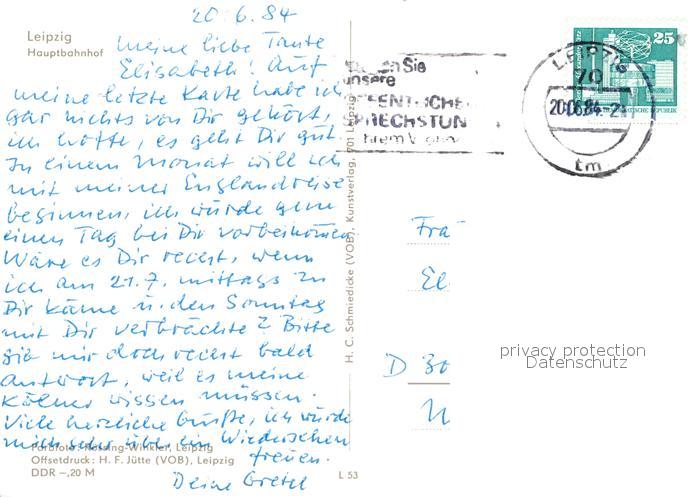 20.6.84
Leipzig
Hauptbahnhof
Meine liebe Tante
Elisabeth! Auf
meine letzte Karte habe ich
gar nichts von Dir gehört,
ich hoffe, es geht Dir gut.
In einem Monat will ich
mit meiner Englandreise
beginnen, ich würde gern
einen Tag bei Dir vorbeikommen
Wäre es Dir recht, wenn
ich am 21.7. mittags zu
Dir käme u. den Sonntag
mit Dir verbrächte? Bitte
gib mir doch recht bald
Antwort, weil es meine
Kölner wissen müssen.
Viele herzliche Grüße, ich würde
mich sehr über ein Wiedersehen
freuen.
Deine Gretel
Farbfoto: Rössing-Winkler, Leipzig
Offsetdruck: H. F. Jütte (VOB), Leipzig
DDR –,20 M
L 53
H. C. Schmiedicke (VOB), Kunstverlag, 701 Leipzig
Sie
unsere
ÖFFENTLICHE
SPRECHSTUN
LEIPZIG
70
20.06.84-21
tm
25
Frä
El
D 30
privacy protection
Datenschutz